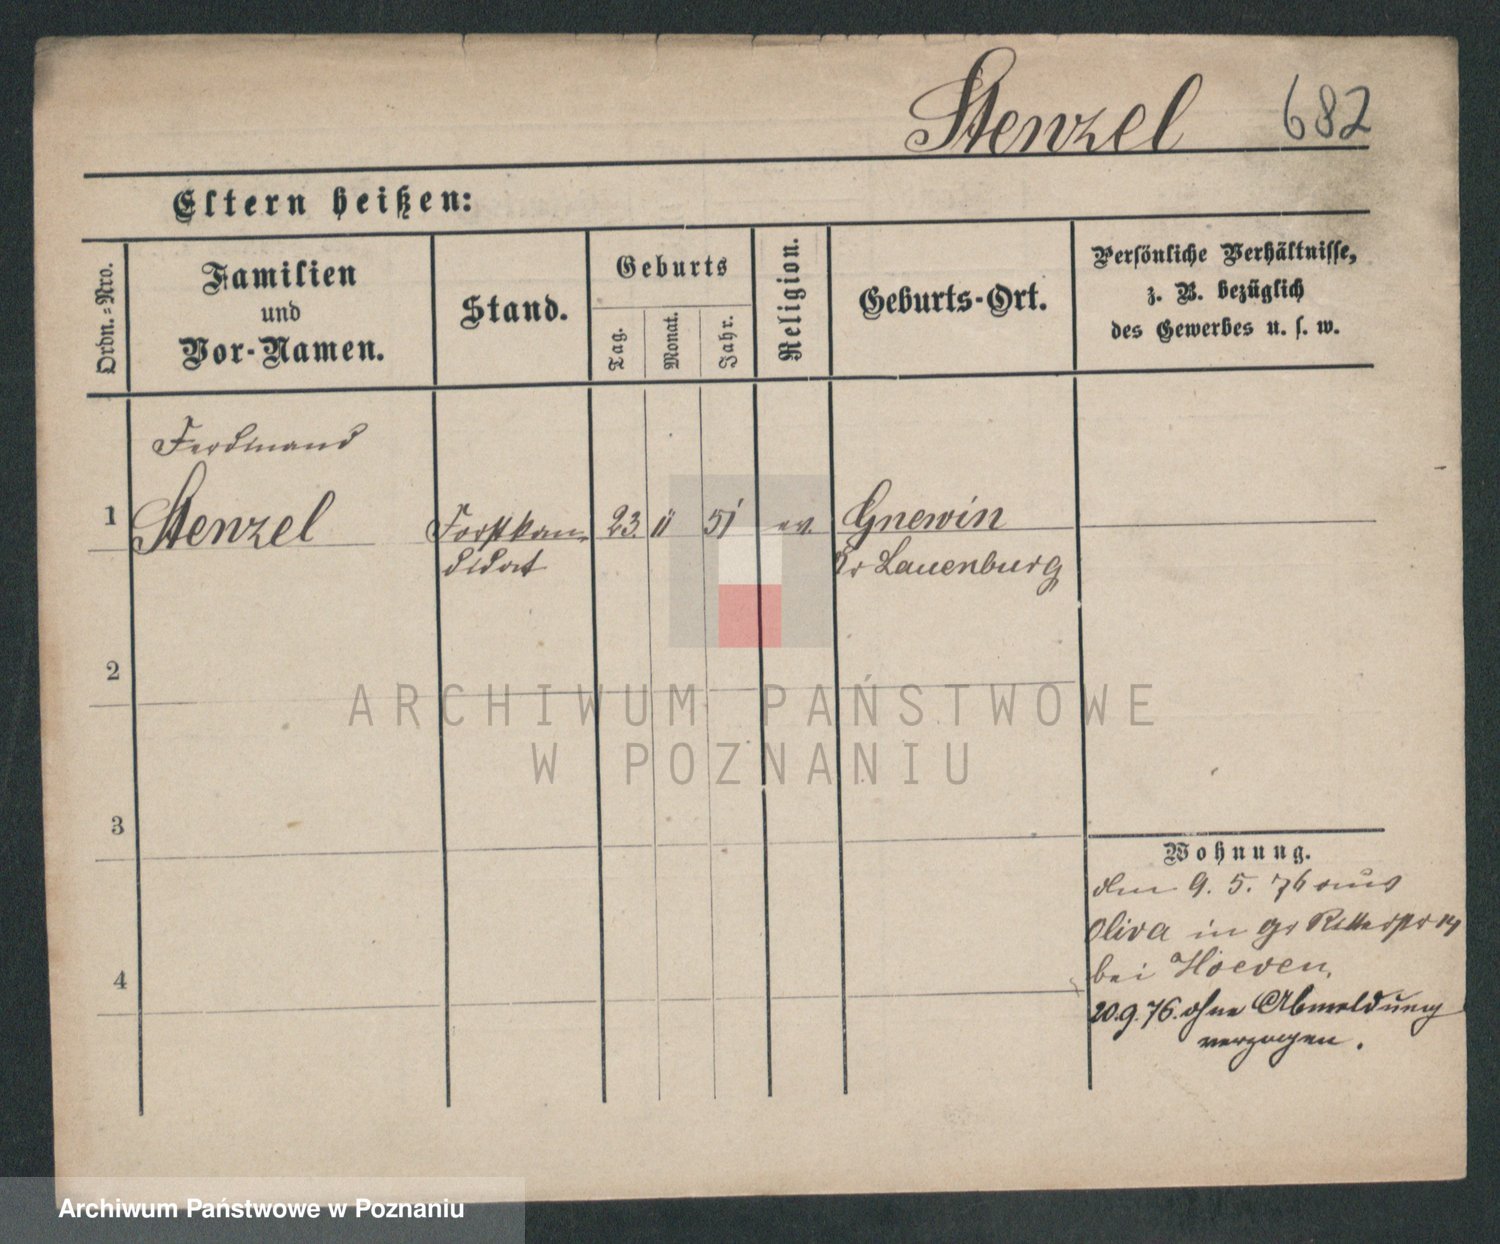 Stenzel 682
Eltern heißen:
Ordn.-Nro.
Familien
und
Vor-Namen.
Stand.
Geburts
Tag.
Monat.
Jahr.
Religion.
Geburts-Ort.
Persönliche Verhältnisse,
z. B. bezüglich
des Gewerbes u. s. w.
Ferdinand
1 Stenzel Forstkan- 23. 11 51 ev. Gnewin
didat Kr Lauenburg
2
3
4
Wohnung.
den 9. 5. 76 aus
Oliva in gr Ritterstr 14
bei Hoeven,
20.9.76. ohne Abmeldung
verzogen.
ARCHIWUM PAŃSTWOWE
W POZNANIU
Archiwum Państwowe w Poznaniu